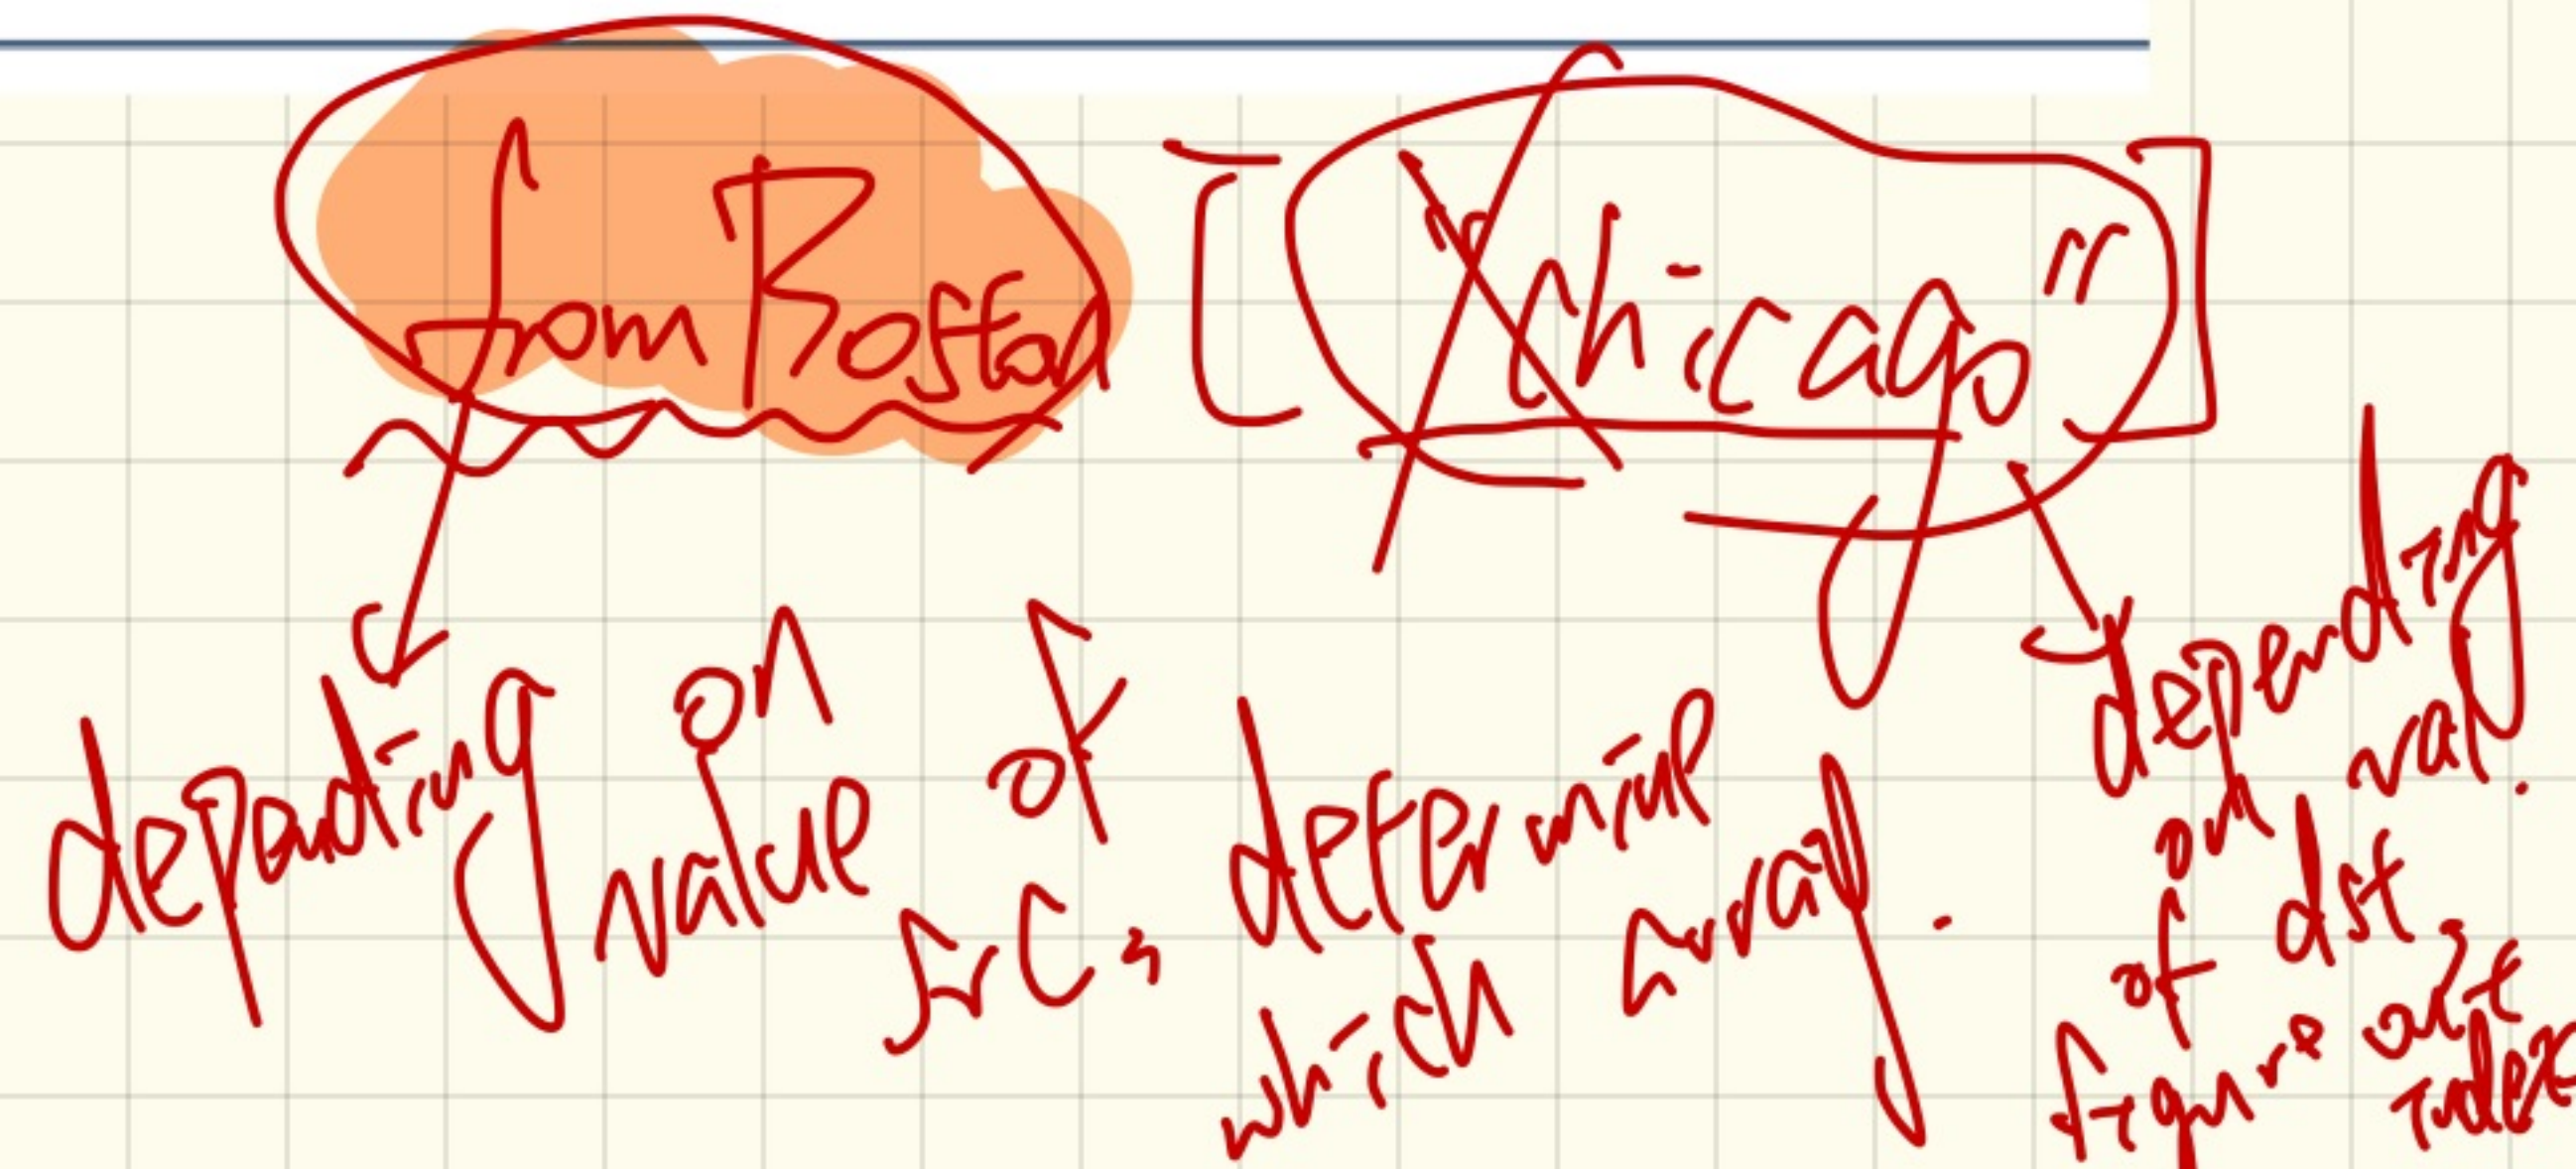 from Boston ["Chicago"]
depending on
value of
src, determine
which array.
depending
on val.
of dst
figure out
index